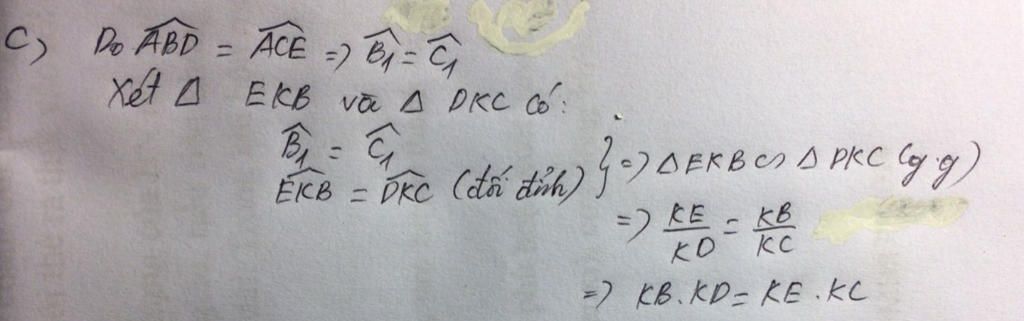 c) Do \widehat{ABD} = \widehat{ACE} => \widehat{B_1} = \widehat{C_1}
Xét Δ EKB và Δ DKC có:
\widehat{B_1} = \widehat{C_1}
\widehat{EKB} = \widehat{DKC} (đối đỉnh) } => Δ EKB ∽ Δ DKC (g.g)
=> \frac{KE}{KD} = \frac{KB}{KC}
=> KB.KD = KE.KC